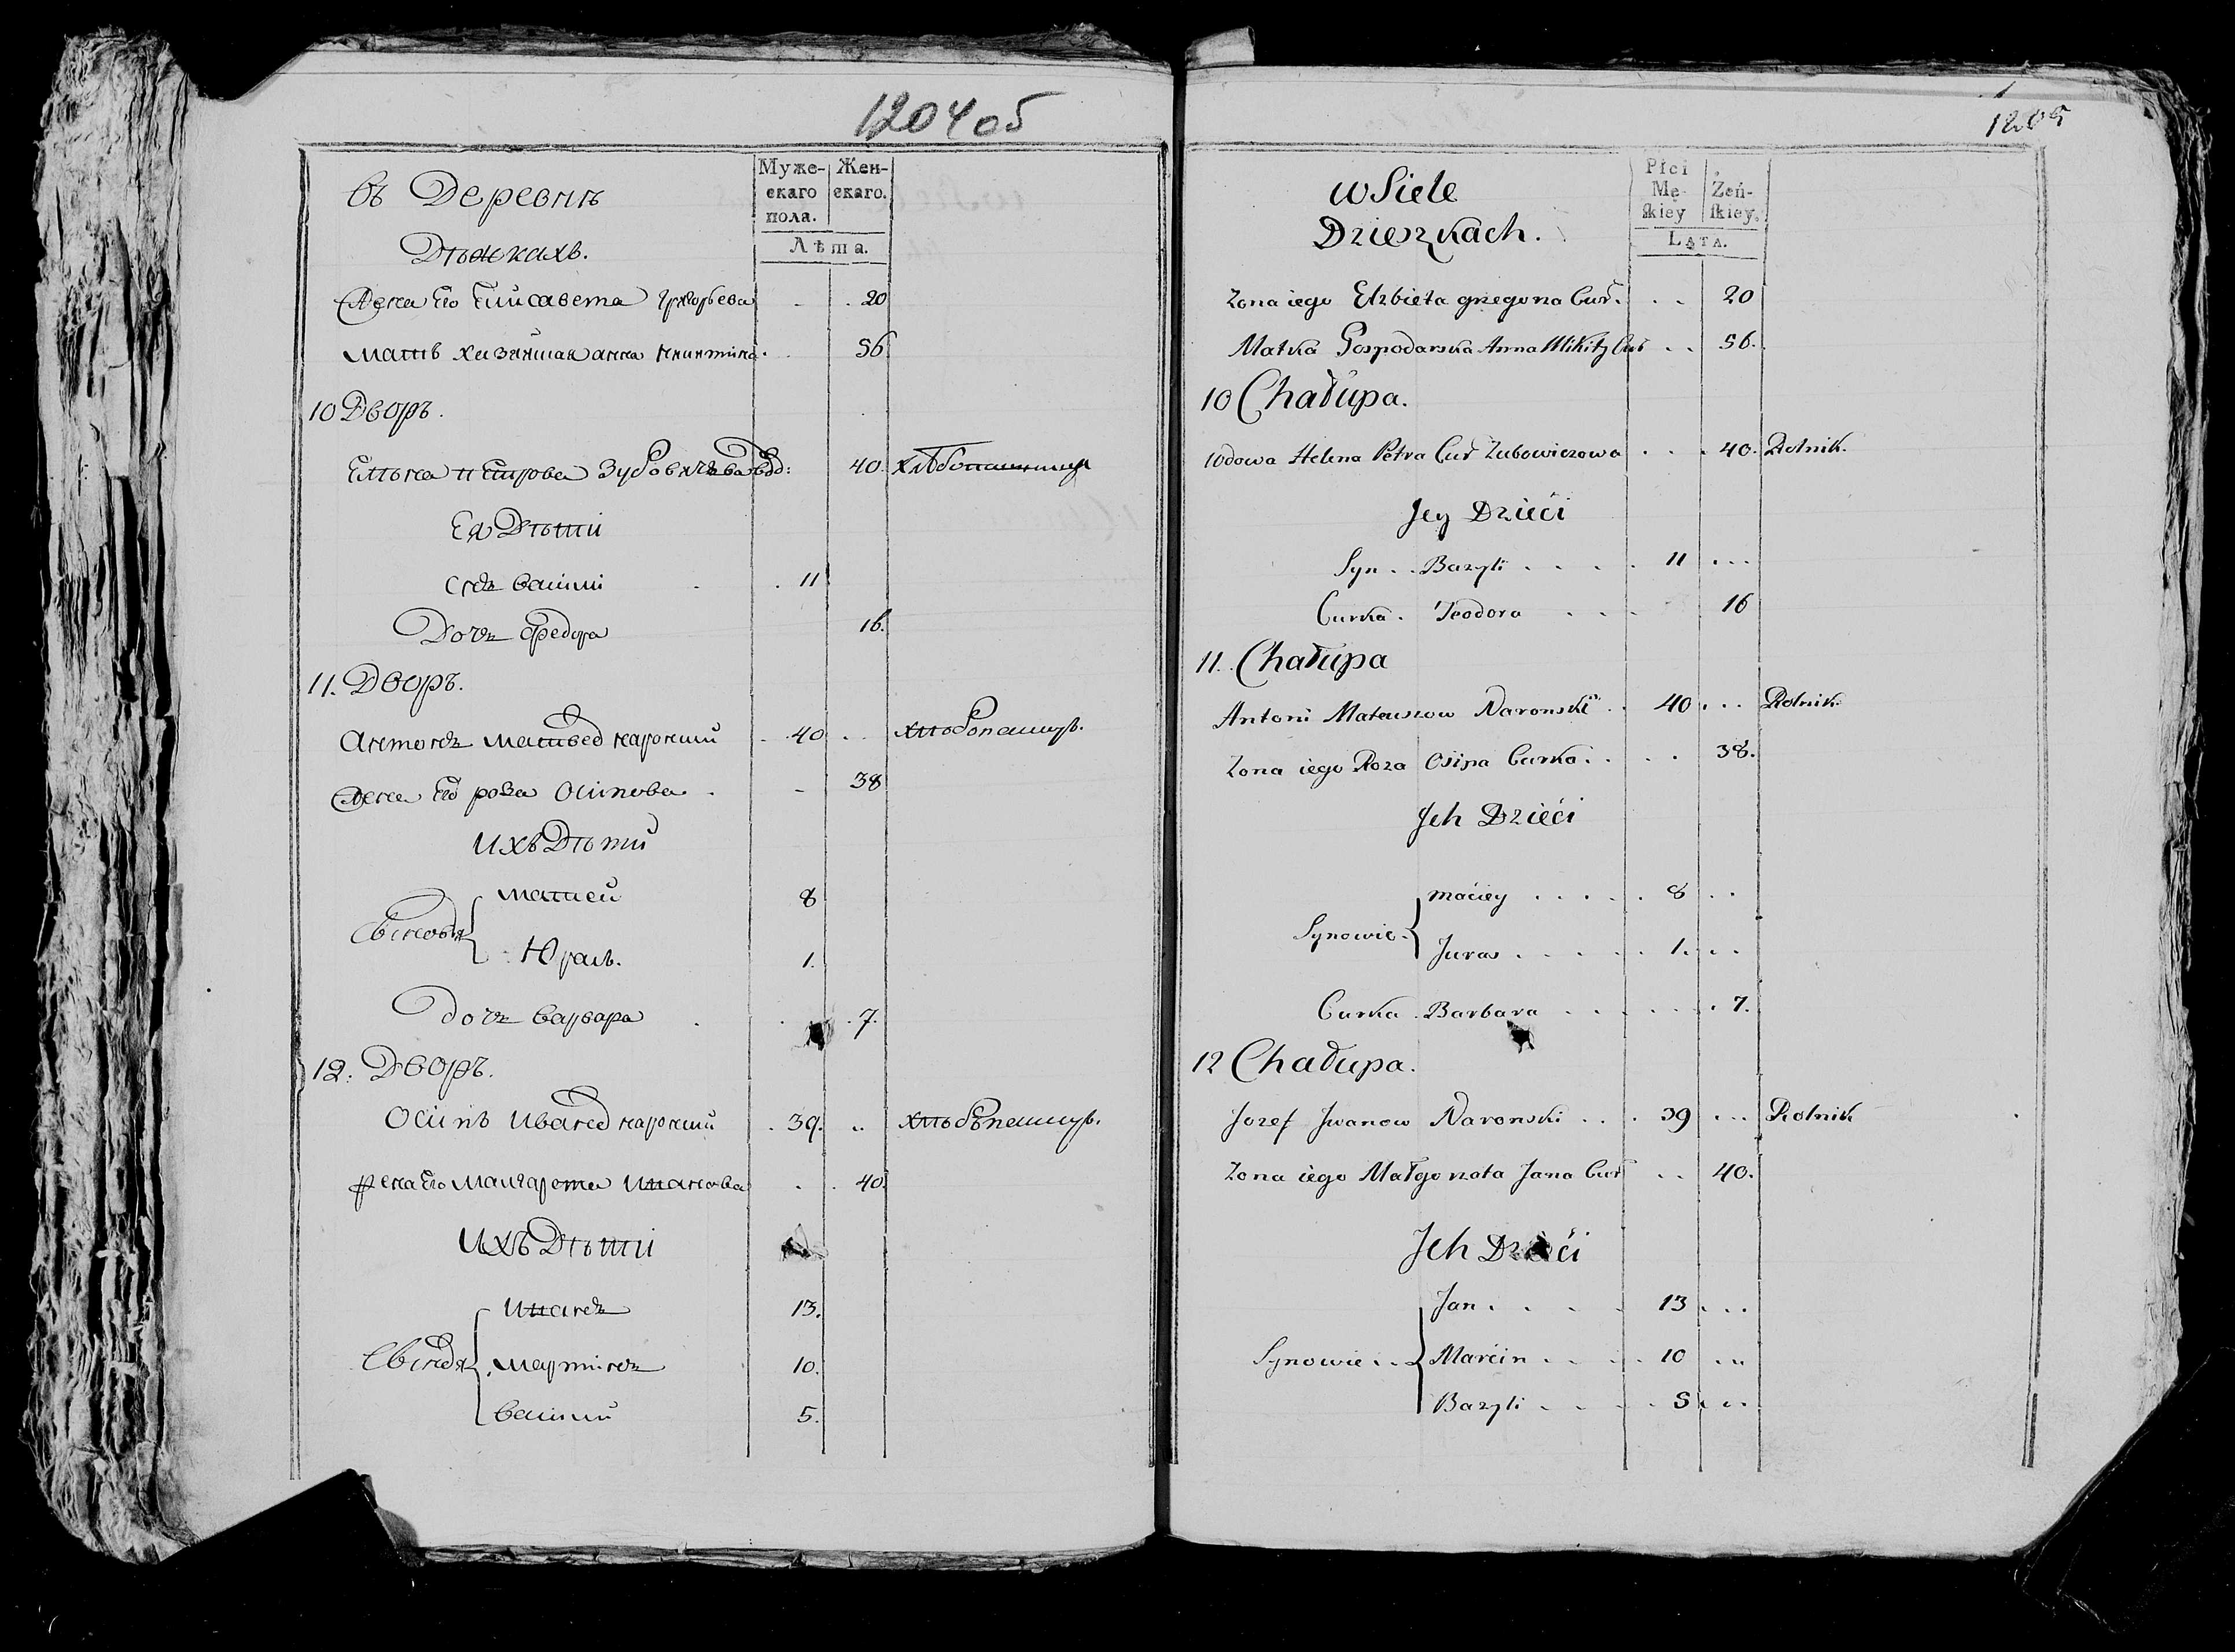 1204 об
въ Деревнѣ
Дѣжкахъ.
Муже-
скаго
пола.
Жен-
скаго.
Лѣта.
Жена Его Елисавета Григорьева 20
мать хозяйшая анна Никитина 56
10 Дворъ.
Елена Петрова Зубовичева вдо: 40. хлѣбопашецъ
Ея Дѣти
сынъ васили 11
Дочь федора 16.
11. Дворъ.
Антонъ матвеевъ наронски 40 хлѣбопашецъ.
Жена Его роза Осипова 38
Ихъ Дѣти
Сыновья { матией 8
Юрась. 1.
дочь варвара 7.
12. Дворъ.
Осипъ Ивановъ наронски 39. хлѣбопашецъ.
жена его маргарета Иванова 40.
Ихъ Дѣти
Сыновья { Иванъ 13.
мартинъ 10.
васили 5.
1205
w Siele
Dzieżkach.
Płci
Mę-
skiey
Żeń-
skiey.
LATA.
Zona iego Elzbieta grzegorza Cur. 20
Matka Gospodarska Anna Mikity Cur 56.
10 Chałupa.
wdowa Helena Petra Cur Zubowiczowa 40. Rolnik.
Jey Dzieći
Syn Bazyli 11
Curka Teodora 16
11. Chałupa
Antoni Mateuszow Naronski 40 Rolnik
Zona iego Roza Osipa Curka 38.
Jch Dzieći
Synowie { Maciey 8
Juras 1.
Curka Barbara 7.
12 Chałupa.
Jozef Jwanow Naronski 39 Rolnik
Zona iego Małgorzata Jana Cur 40.
Jch Dzieći
Synowie { Jan 13
Marcin 10
Bazyli 5